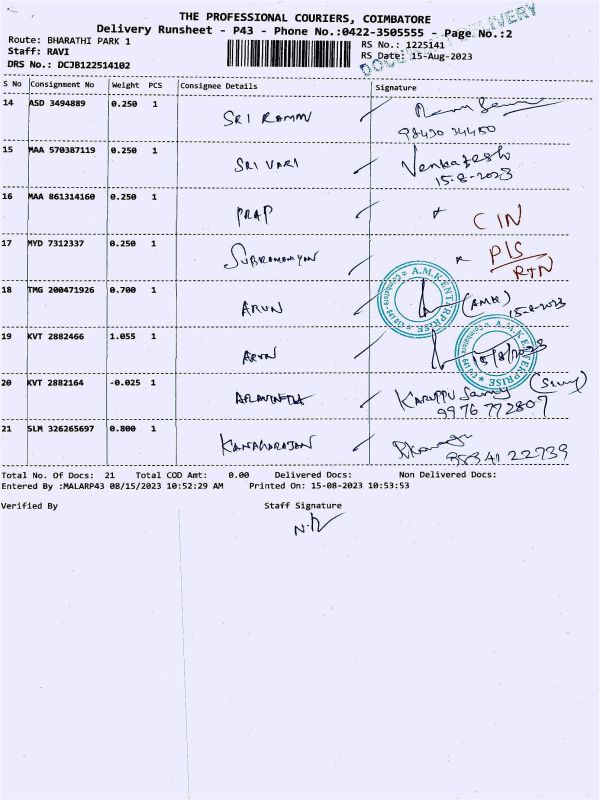 THE PROFESSIONAL COURIERS, COIMBATORE
Delivery Runsheet - P43 - Phone No.:0422-3505555 - Page No.:2
Route: BHARATHI PARK 1
Staff: RAVI
DRS No.: DCJB122514102
RS No.: 1225141
RS Date: 15-Aug-2023
S No Consignment No Weight PCS Consignee Details Signature
14 ASD 3494889 0.250 1 SRI RAMAN
98430 34450
15 MAA 570387119 0.250 1 SRI VARI Venkatesh
15-8-2023
16 MAA 861314160 0.250 1 PRAP CIN
17 MYD 7312337 0.250 1 SUBRAMANYAN PIS
RTN
18 TMG 200471926 0.700 1 ARUN (AMK)
15-8-2023
A.M.K ENTERPRISE
19 KVT 2882466 1.055 1 ARUN 15/8/2023
A.M.K ENTERPRISE
20 KVT 2882164 -0.025 1 KARUPPU Samy
9976 772807
21 SLM 326265697 0.800 1 KANAKARAJAN
95841 22739
Total No. Of Docs: 21 Total COD Amt: 0.00 Delivered Docs: Non Delivered Docs:
Entered By :MALARP43 08/15/2023 10:52:29 AM Printed On: 15-08-2023 10:53:53
Verified By Staff Signature